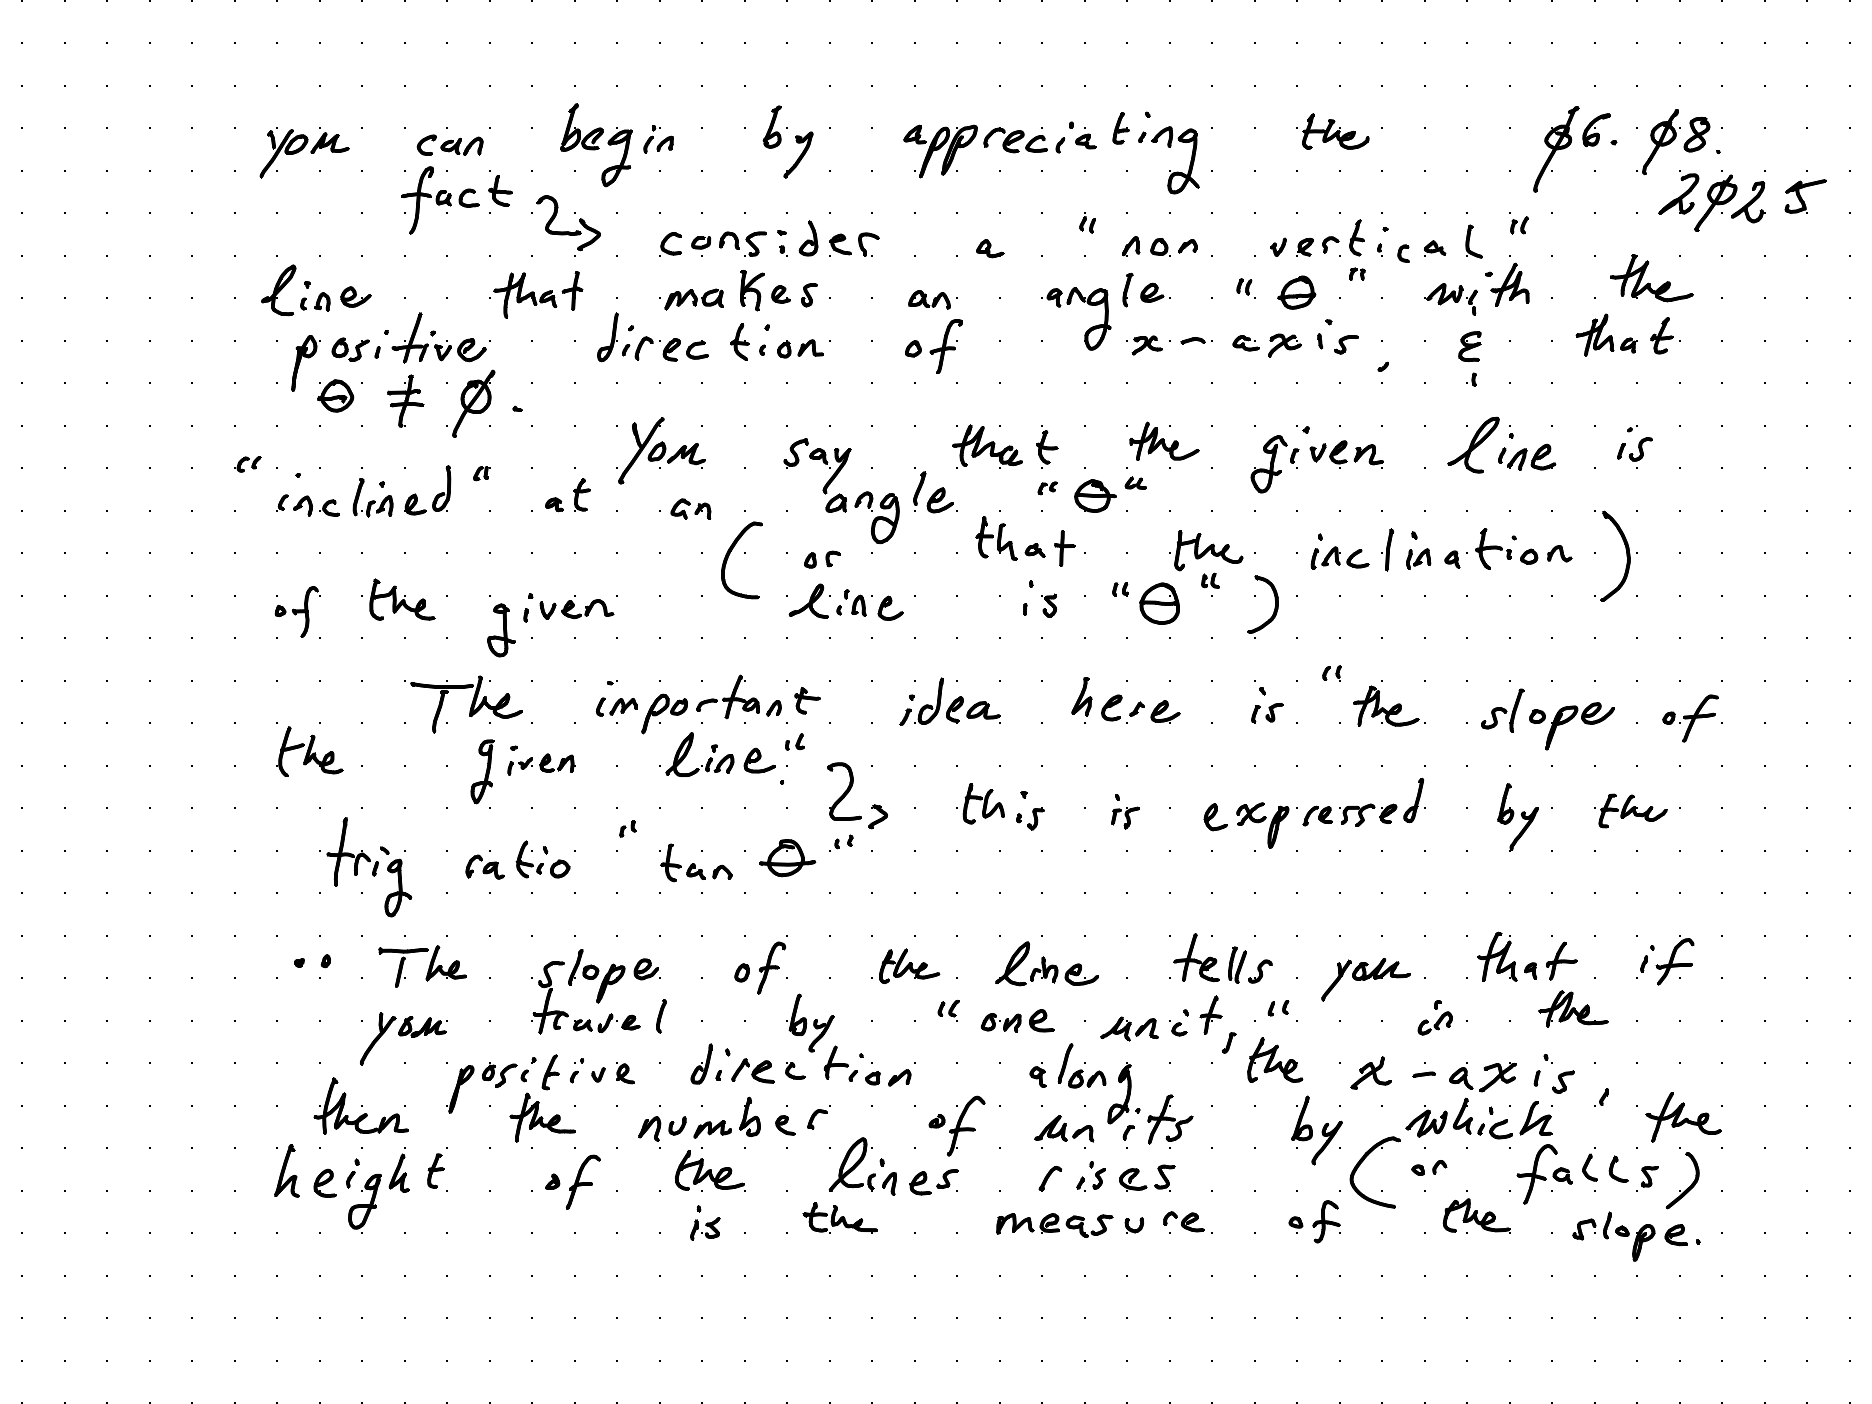 you can begin by appreciating the ø6. ø8.
fact 2ø25
↳ consider a "non vertical"
line that makes an angle "θ" with the
positive direction of x-axis, & that
θ ≠ ø.
You say that the given line is
"inclined" at an angle "θ"
(or that the inclination)
of the given line is "θ")
The important idea here is "the slope of
the given line."
↳ this is expressed by the
trig ratio "tan θ"
.. The slope of the line tells you that if
you travel by "one unit," in the
positive direction along the x-axis,
then the number of units by which the
height of the lines rises (or falls)
is the measure of the slope.